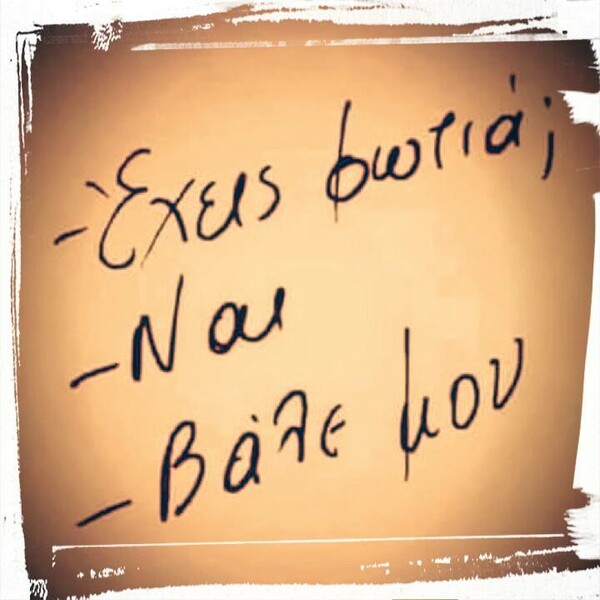 -Έχεις φωτιά;
-Ναι
-Βάλε μου